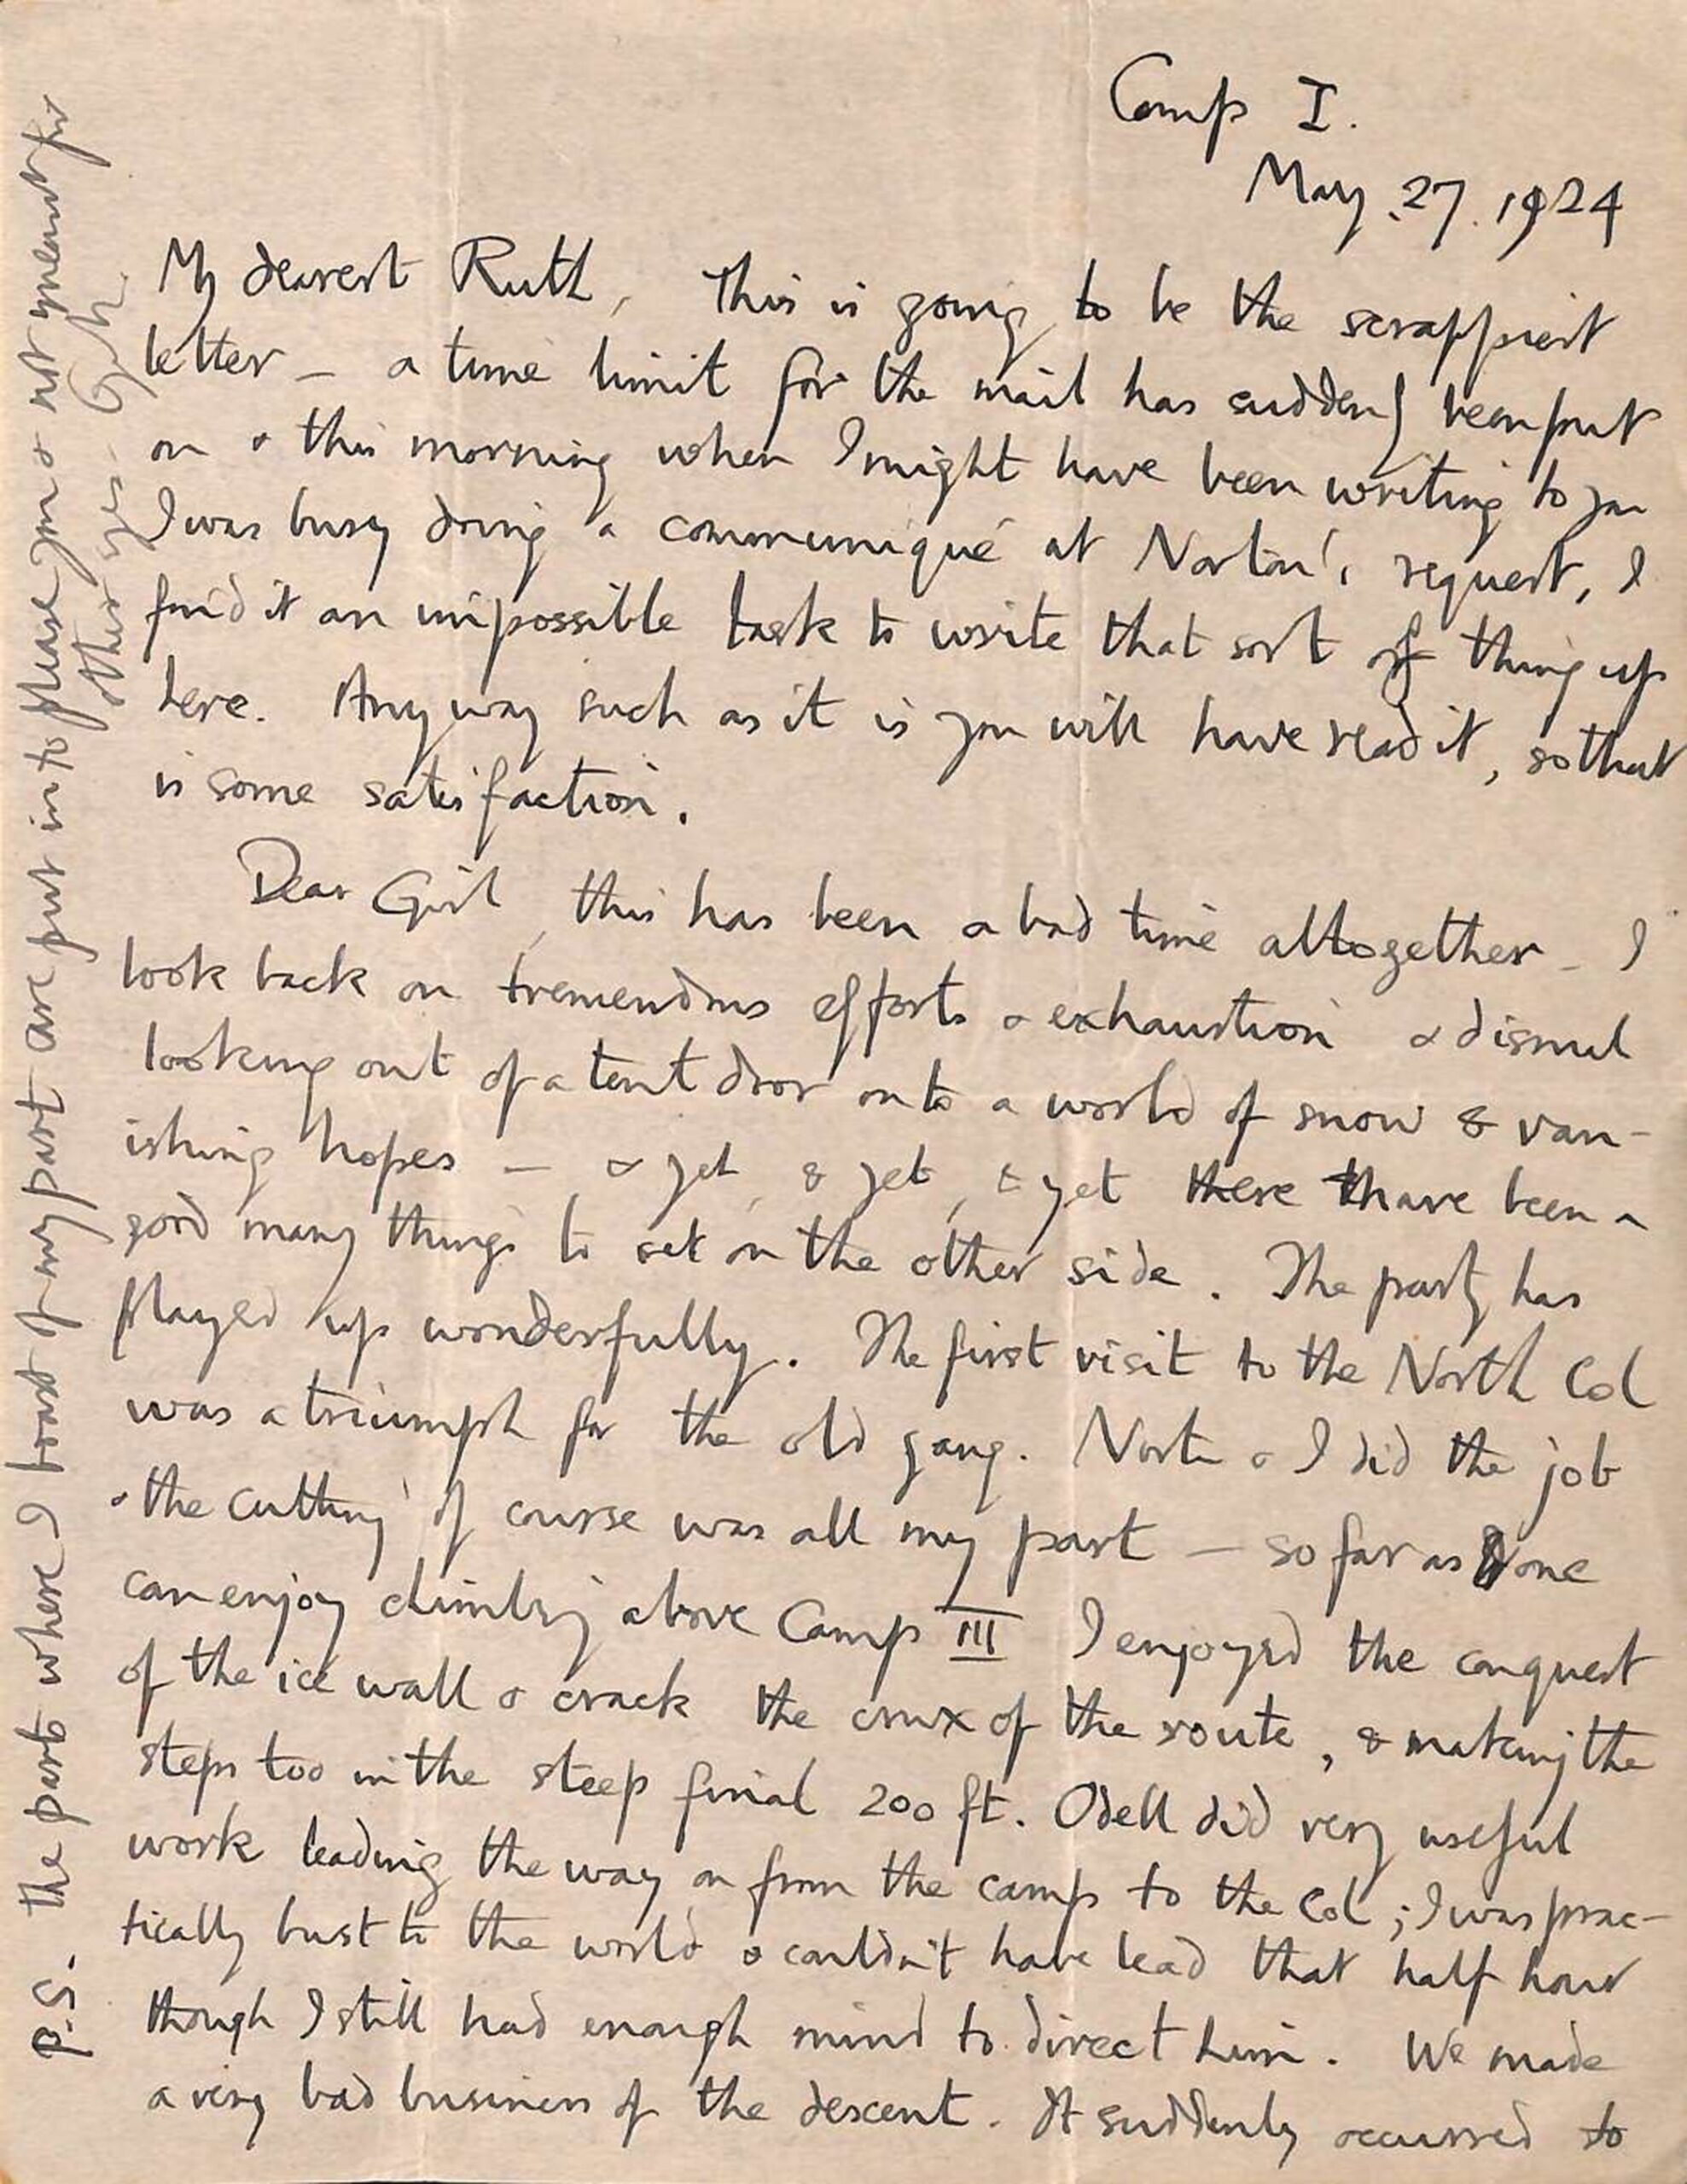 Camp I.
May. 27. 1924
My dearest Ruth, This is going to be the scrappiest
letter – a time limit for the mail has suddenly been put
on & this morning when I might have been writing to you
I was busy doing a communiqué at Norton's request, I
find it an impossible task to write that sort of thing up
here. Anyway such as it is you will have read it, so that
is some satisfaction.
Dear Girl, this has been a bad time altogether – I
look back on tremendous efforts & exhaustion & dismal
looking out of a tent door onto a world of snow & van-
ishing hopes – & yet, & yet, & yet there have been a
good many things to set on the other side. The party has
played up wonderfully. The first visit to the North Col
was a triumph for the old gang. Norton & I did the job
& the cutting of course was all my part – so far as one
can enjoy climbing above Camp III I enjoyed the conquest
of the ice wall & crack the crux of the route, & making the
steps too in the steep final 200 ft. Odell did very useful
work leading the way on from the camp to the Col; I was prac-
tically bust to the world & couldn't have lead that half hour
though I still had enough mind to direct him. We made
a very bad business of the descent. It suddenly occurred to
P.S. The parts where I boast of my part are put in to please you & not meant for
other eyes.